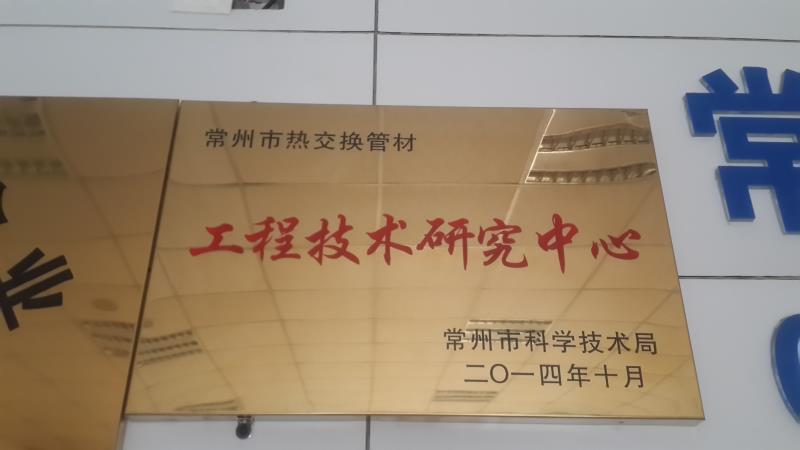 常州市热交换管材
工程技术研究中心
常州市科学技术局
二〇一四年十月
常